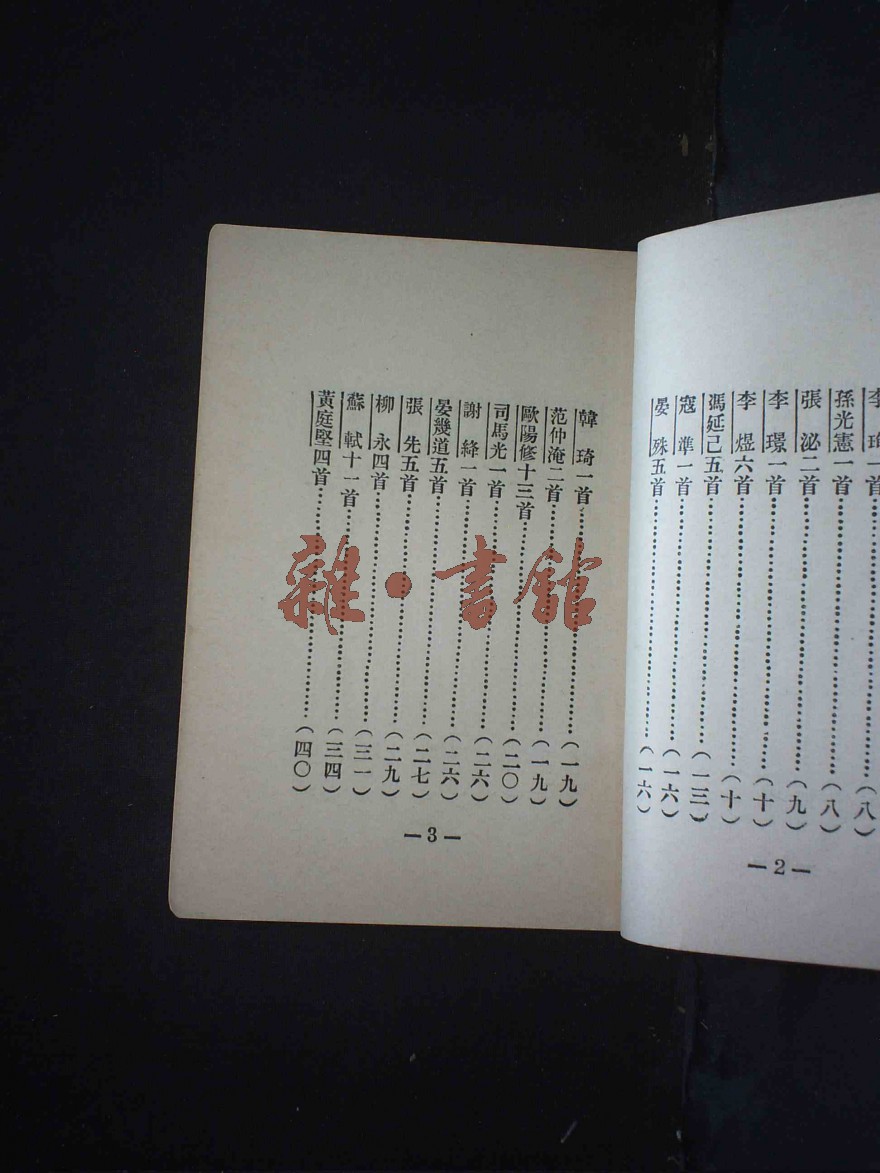 李珣一首……(八)
孫光憲一首……(八)
張泌二首……(九)
李璟一首……(十)
李煜六首……(十)
馮延己五首……(一三)
寇準一首……(一六)
晏殊五首……(一六)
—2—
韓琦一首……(一九)
范仲淹二首……(一九)
歐陽修十三首……(二〇)
司馬光一首……(二六)
謝絳一首……(二六)
晏幾道五首……(二六)
張先五首……(二七)
柳永四首……(二九)
蘇軾十一首……(三一)
黃庭堅四首……(四〇)
—3—
雜·書館